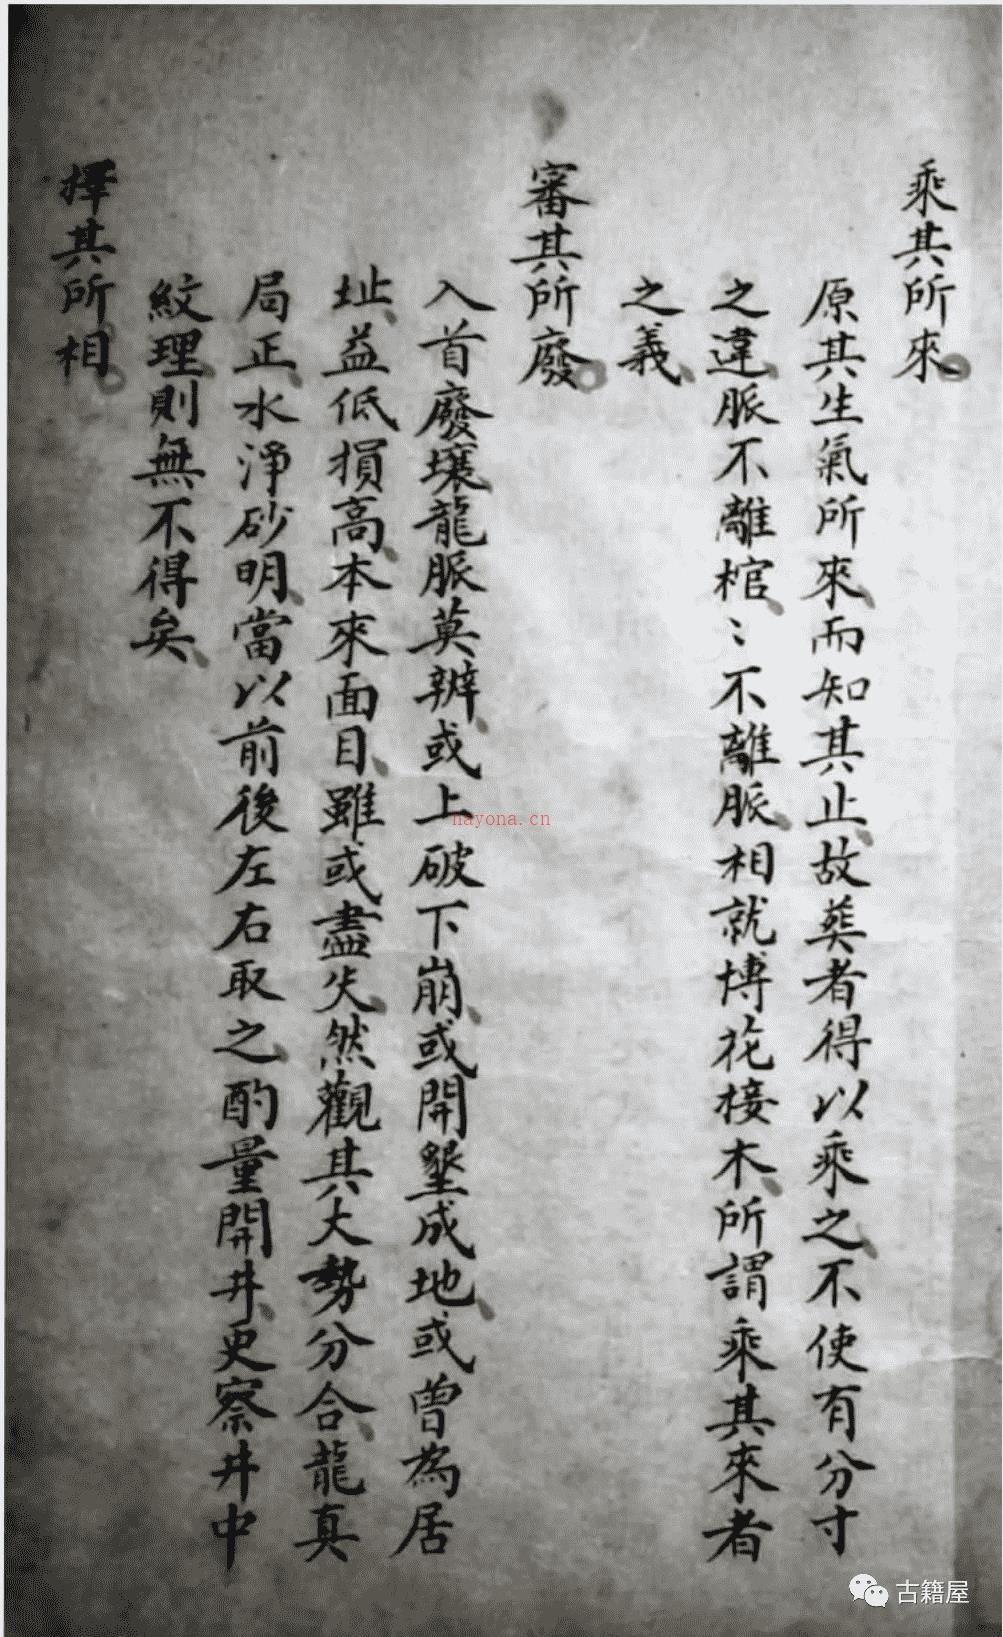 乘其所來
原其生氣所來而知其止故葬者得以乘之不使有分寸
之違脈不離棺〻不離脈相就博花接木所謂乘其來者
之義
審其所廢
入首廢壞龍脈莫辨或上破下崩或開墾成地或曾為居
址益低損高本來面目雖或盡失然觀其大勢分合龍真
局正水淨砂明當以前後左右取之酌量開井更察井中
紋理則無不得矣
擇其所相
nayona.cn
古籍屋